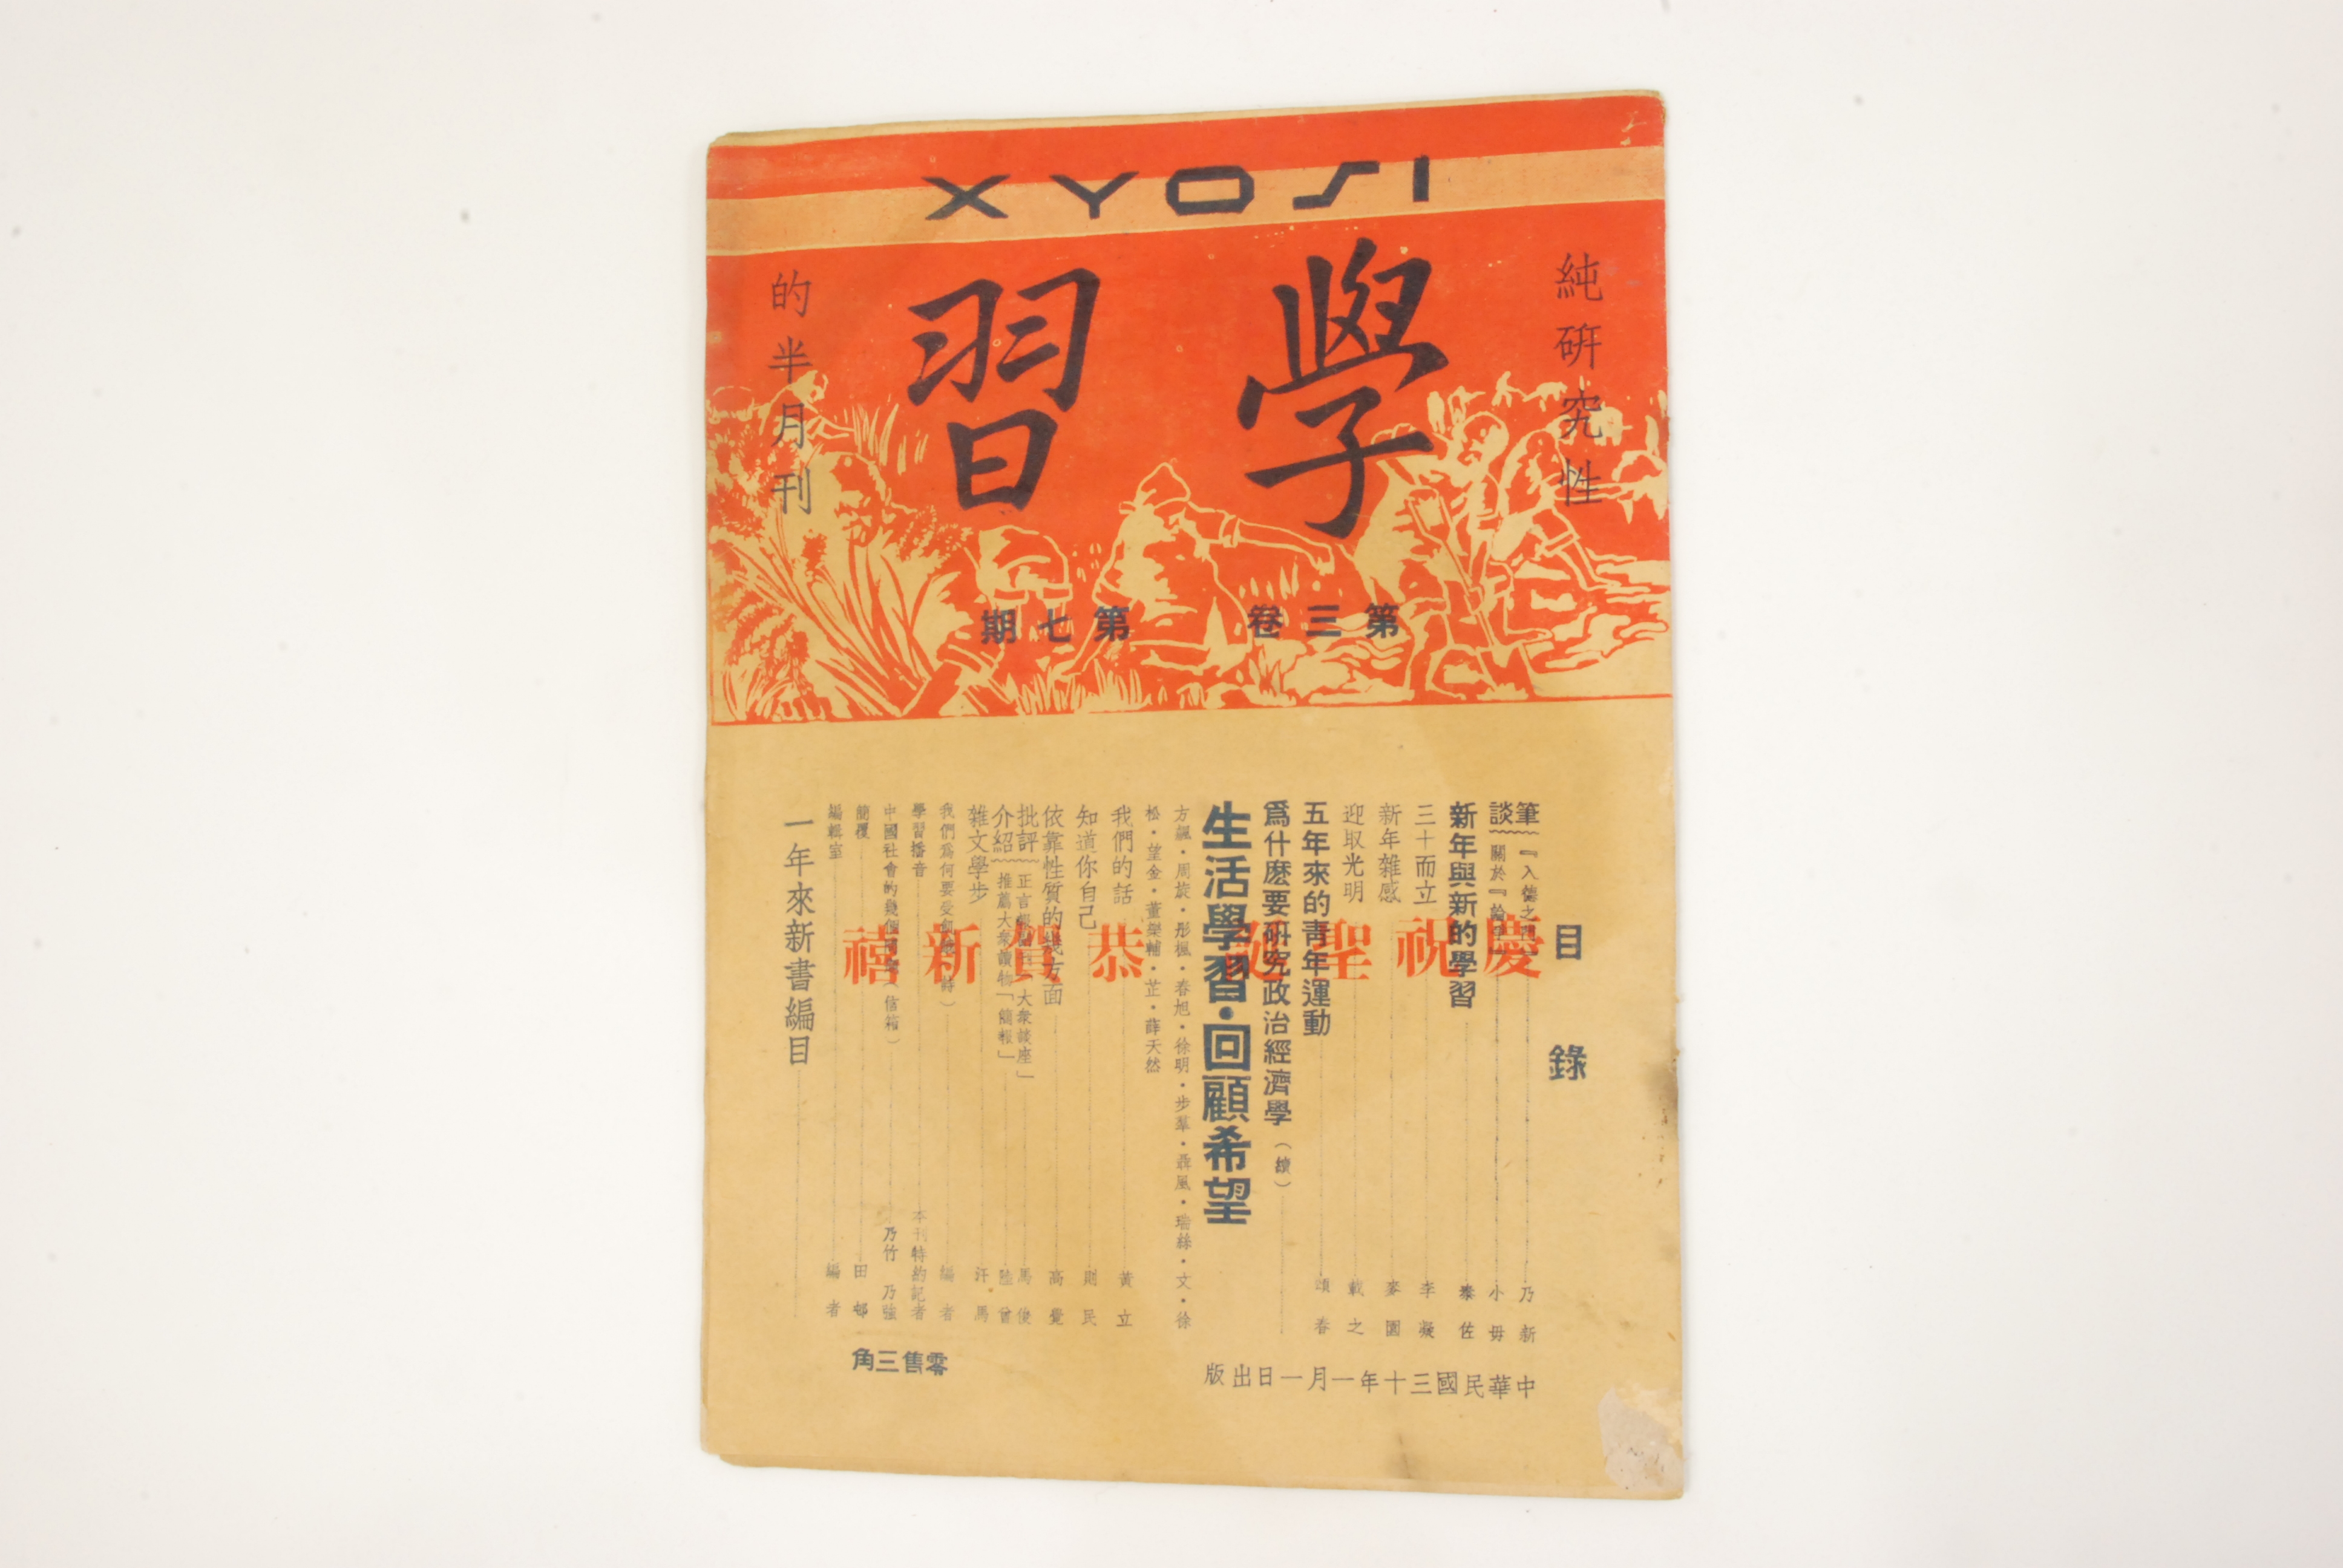 XYOSI
學習
純研究性
的半月刊
第三卷 第七期
目錄
慶祝聖誕 恭賀新禧
筆談
『入德之門』 乃新
關於『論 小毋
新年與新的學習 黎佐
三十而立 李凝
新年雜感 麥園
迎取光明 載之
五年來的青年運動 頌春
爲什麽要研究政治經濟學（續）
生活學習·回顧希望
方飆·周旋·彤楓·春旭·徐明·步羣·聶風·瑞絲·文·徐
松·望金·董樂輔·芷·薛天然
我們的話 黃立
知道你自己 則民
依靠性質的幾方面 高覺
批評介紹
正言報 「大衆談座」 馬俊
推薦大衆讀物「簡報」 陸曾
雜文學步 汗馬
我們爲何要受 （詩） 編者
學習播音 本刊特約記者
中國社會的幾個 （信箱） 乃竹 乃強
簡覆 田邨
編輯室 編者
一年來新書編目
中華民國三十年一月一日出版
零售三角